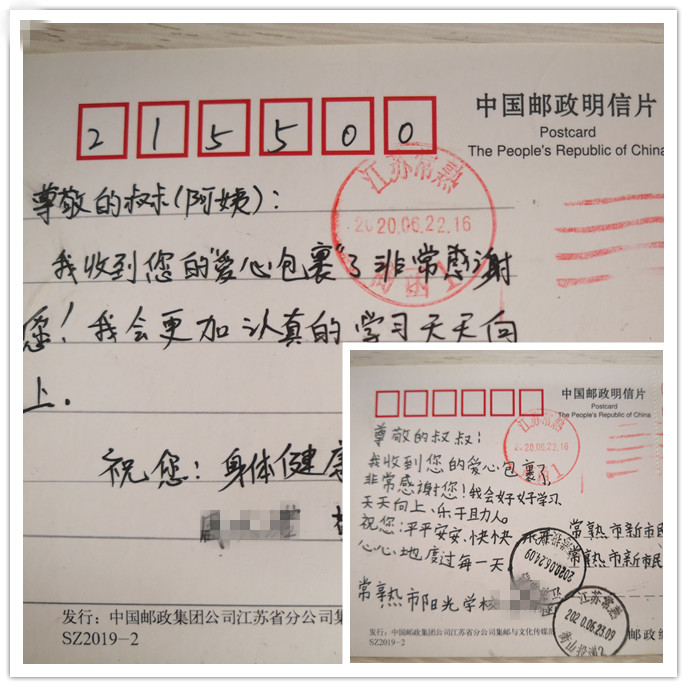 215500
中国邮政明信片
Postcard
The People's Republic of China
江苏常熟
2020.06.22.16
尊敬的叔叔(阿姨):
我收到您的"爱心包裹"了非常感谢
您!我会更加认真的学习天天向
上.
祝您:身体健康
发行:中国邮政集团公司江苏省分公司集
SZ2019-2
中国邮政明信片
Postcard
The People's Republic of China
江苏常熟
2020.06.22.16
1
尊敬的叔叔:
我收到您的爱心包裹了,
非常感谢您!我会好好学习
天天向上、乐于助人。
祝您:平平安安、快快
心心地度过每一天
常熟市新市民
常熟市新市民
常熟市阳光学校
2020.06.24.09
江苏常熟
2020.06.23.09
发行:中国邮政集团公司江苏省分公司集邮与文化传媒
SZ2019-2
邮政编